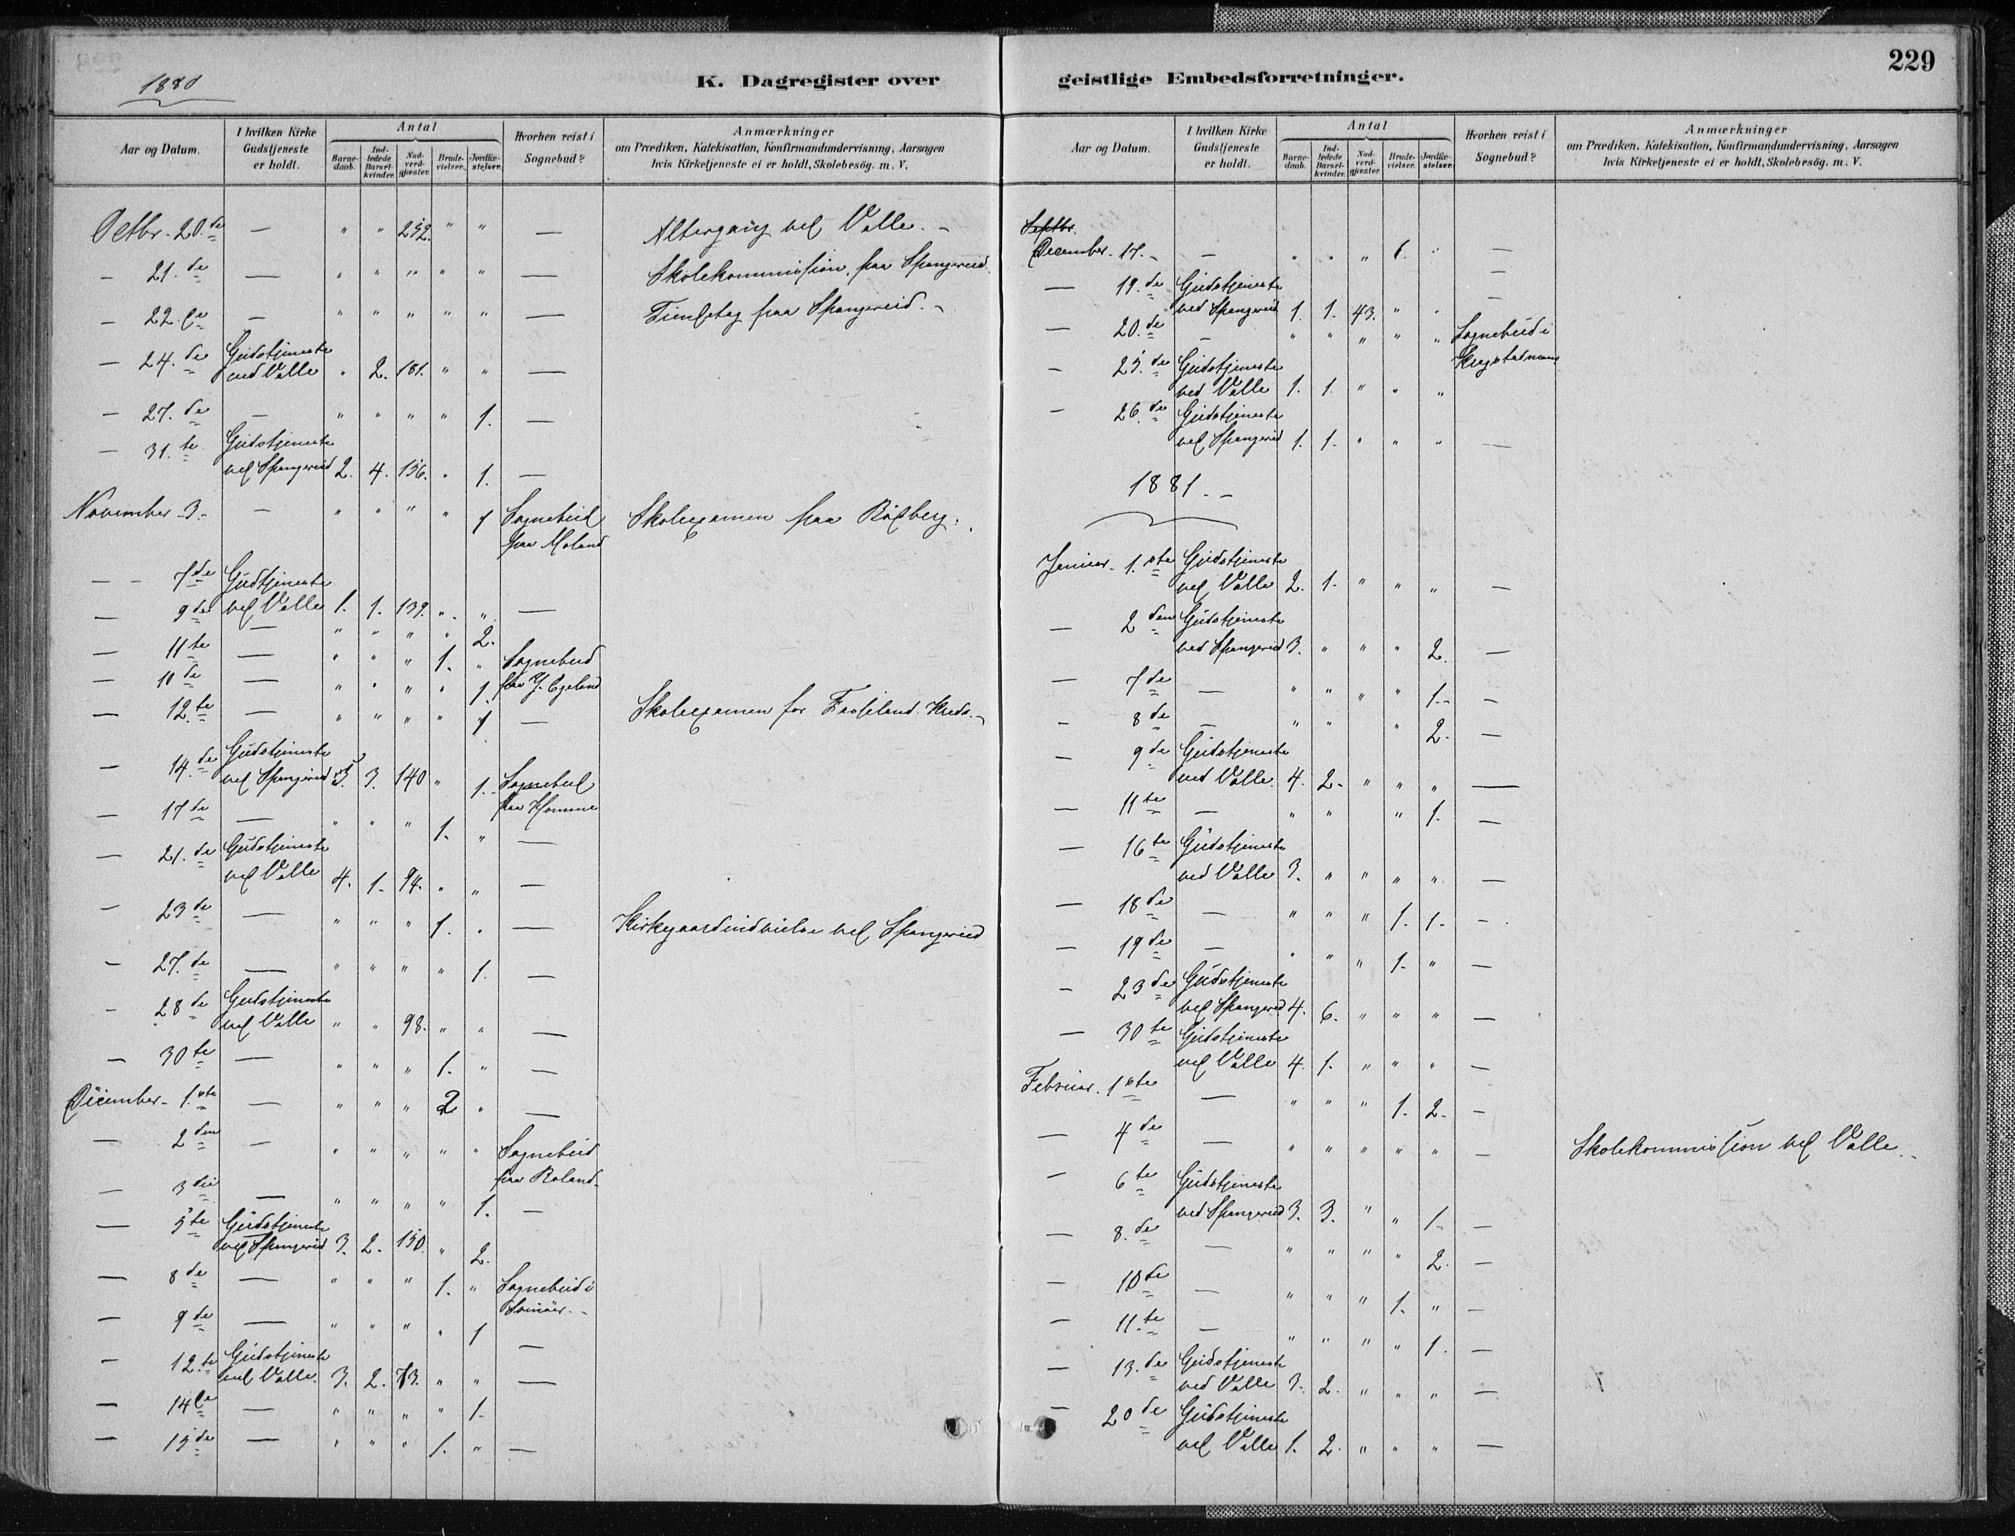 229
1880
K. Dagregister over geistlige Embedsforretninger.
Aar og Datum. | I hvilken Kirke Gudstjeneste er holdt. | Antal | Barnedaab. | Indledede Barselkvinder. | Nadverdgjæster. | Brudevielser. | Jordfæstelser. | Hvorhen reist i Sognebud? | Anmærkninger om Prædiken, Katekisation, Konfirmandundervisning, Aarsagen hvis Kirketjeneste ei er holdt, Skolebesög. m. V.
Octbr. 20.de — " " 252. " " — Altergang ved Valle. -
— 21.de — " " " " " — Skolekommission paa Spangereid.
— 22.de — " " " " " — paa Spangereid. -
— 24.de Gudstjeneste
ved Valle " 2. 181. " " —
— 27.de — " " " " 1. —
— 31.te Gudstjeneste
ved Spangereid 2. 4. 156. " 1. —
November 3. — " " " " 1 Sognebud Skoleexamen paa Rödberg.
paa Moland
— 7de Gudtjeneste
ved Valle 1. 1. 139. " " —
— 9de — " " " " 2.
— 11te — " " " 1. " Sognebud
— 10de — " " " " 1. paa Y. Egeland
— 12.te — " " " " 1 — Skoleexamen for Faseland Kreds. -
— 14.de Gudstjeneste
ved Spangereid 3. 3. 140 " 1. Sognebud
paa Homme
— 17de — " " " 1. " —
— 21.de Gudstjeneste
ved Valle 4. 1. 94. " " —
— 23de — " " " 1. " — Kirkegaardindvielse ved Spangereid
— 27.de — " " " " 1. —
— 28de Gudstjeneste
ved Valle " " 98. " " —
— 30te — " " " 1. " —
December 1.ste — " " " 2 " —
— 2den — " " " " " Sognebud
paa Roland
— 3die — " " " " 1. —
— 5te Gudstjeneste
ved Spangereid 3. 2. 150. " 2.
— 8de — " " " 1. " Sognebud i
Svinöer. -
— 9de — " " " " 1 —
— 12.te Gudstjeneste
ved Valle. 3. 2. 73. " " —
— 14de — " " " " 1.
— 15de — " " " 1. " —
Aar og Datum. | I hvilken Kirke Gudstjeneste er holdt. | Antal | Barnedaab. | Indledede Barselkvinder. | Nadverdgjæster. | Brudevielser. | Jordfæstelser. | Hvorhen reist i Sognebud? | Anmærkninger om Prædiken, Katekisation, Konfirmandundervisning, Aarsagen hvis Kirketjeneste ei er holdt, Skolebesög. m. V.
Septbr.
December 17. — " " " 1. " —
— 19.de Gudstjeneste
ved Spangereid 1. 1. 43. " " —
— 20.de — " " " " " Sognebud i
— 25.de Gudstjeneste
ved Valle 1. 1. " " "
— 26.de Gudstjeneste
ved Spangereid 1. 1. " " " —
1881. -
Januar 1.ste Gudstjeneste
ved Valle 2. 1. " " " —
— 2den Gudstjeneste
ved Spangereid 3. " " " 2. —
— 7de — " " " " 1. —
— 8de — " " " 2. —
— 9de Gudstjeneste
ved Valle. 4. 2. " " " —
— 11te — " " " " 1. —
— 16te Gudstjeneste
ved Valle 3. " " " " —
— 18de — " " " 1. 1. —
— 19de — " " " 1. " —
— 23de Gudstjeneste
ved Spangereid 4. 6. " " " —
— 30te Gudstjeneste
ved Valle 4. 1. " " " —
Februar. 1ste — " " " 1. 2. —
— 4de — " " " " " — Skolekommission ved Valle. -
— 6te Gudstjeneste
ved Spangereid 3. 3. " " 1. —
— 8.de — " " " " 2. —
— 10de — " " " 1. " —
— 11.te — " " " " 1. —
— 13.de Gudstjeneste
ved Valle 3. 2. " " " —
— 20de Gudstjeneste
ved Valle 1. 2. " " " —